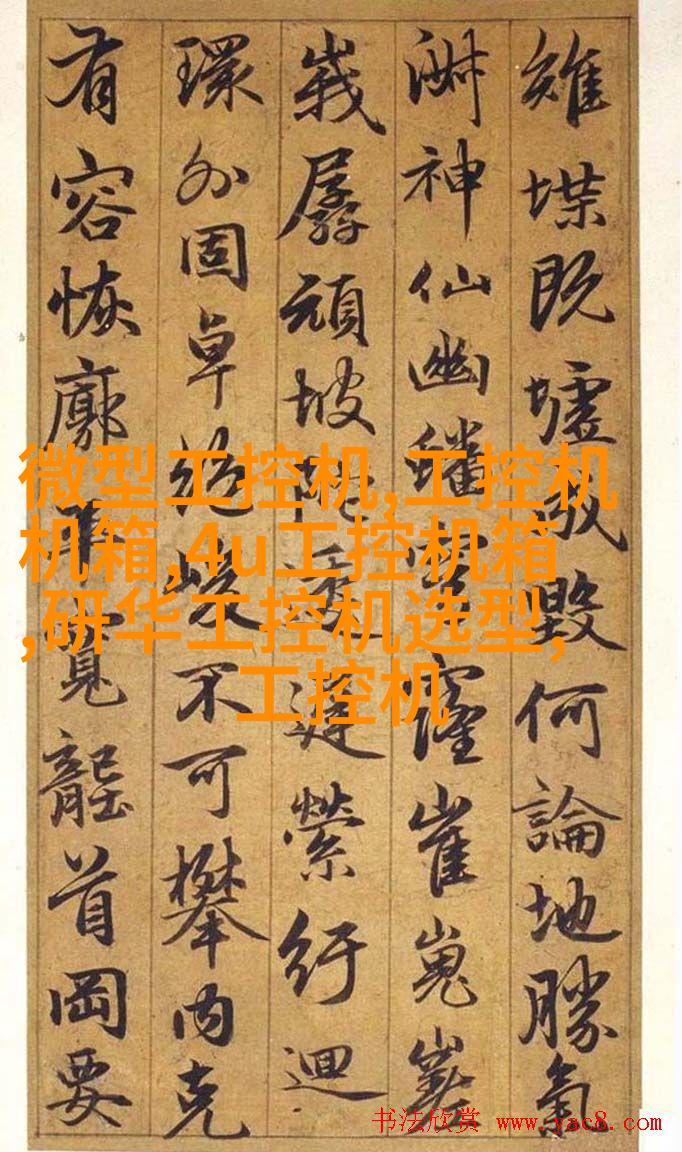 雉堞既墟毀何論地勝氣
神仙幽窿崔嵬嵳
峩孱頑坡縈紆迴
環外固卓絶峻不可攀内克
有容恢廓寬龍首岡要
微型工控机,工控机
机箱,4u工控机箱
,研华工控机选型,
工控机
书法欣赏 www.yac8.com